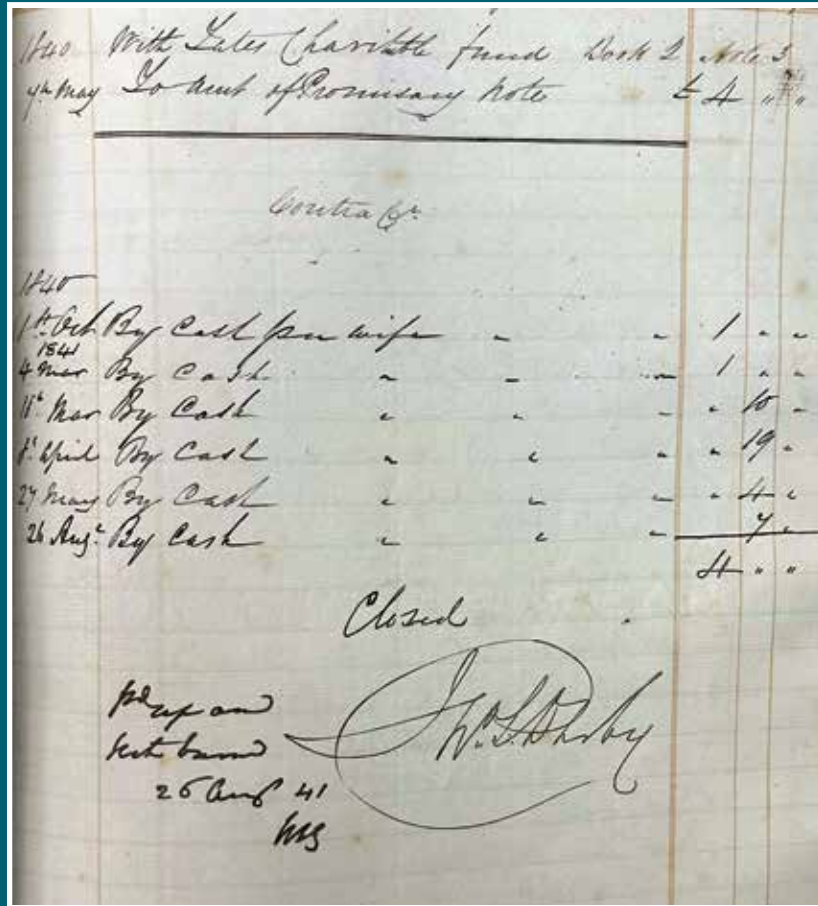 1840 With Yates Charitable fund Book 2 Note 3
7th May To Amt of Promisary Note £ 4 " "
Contra Cr
1840
1st Oct By Cash per wife " " 1 " "
1841
4 Mar By Cash " " " 1 " "
18th Mar By Cash " " " " 10 "
8th April By Cash " " " " 19 "
27 May By Cash " " " " 4 "
26 Augt By Cash " " " 7 "
4 " "
Closed
pd up and
26 Aug 41